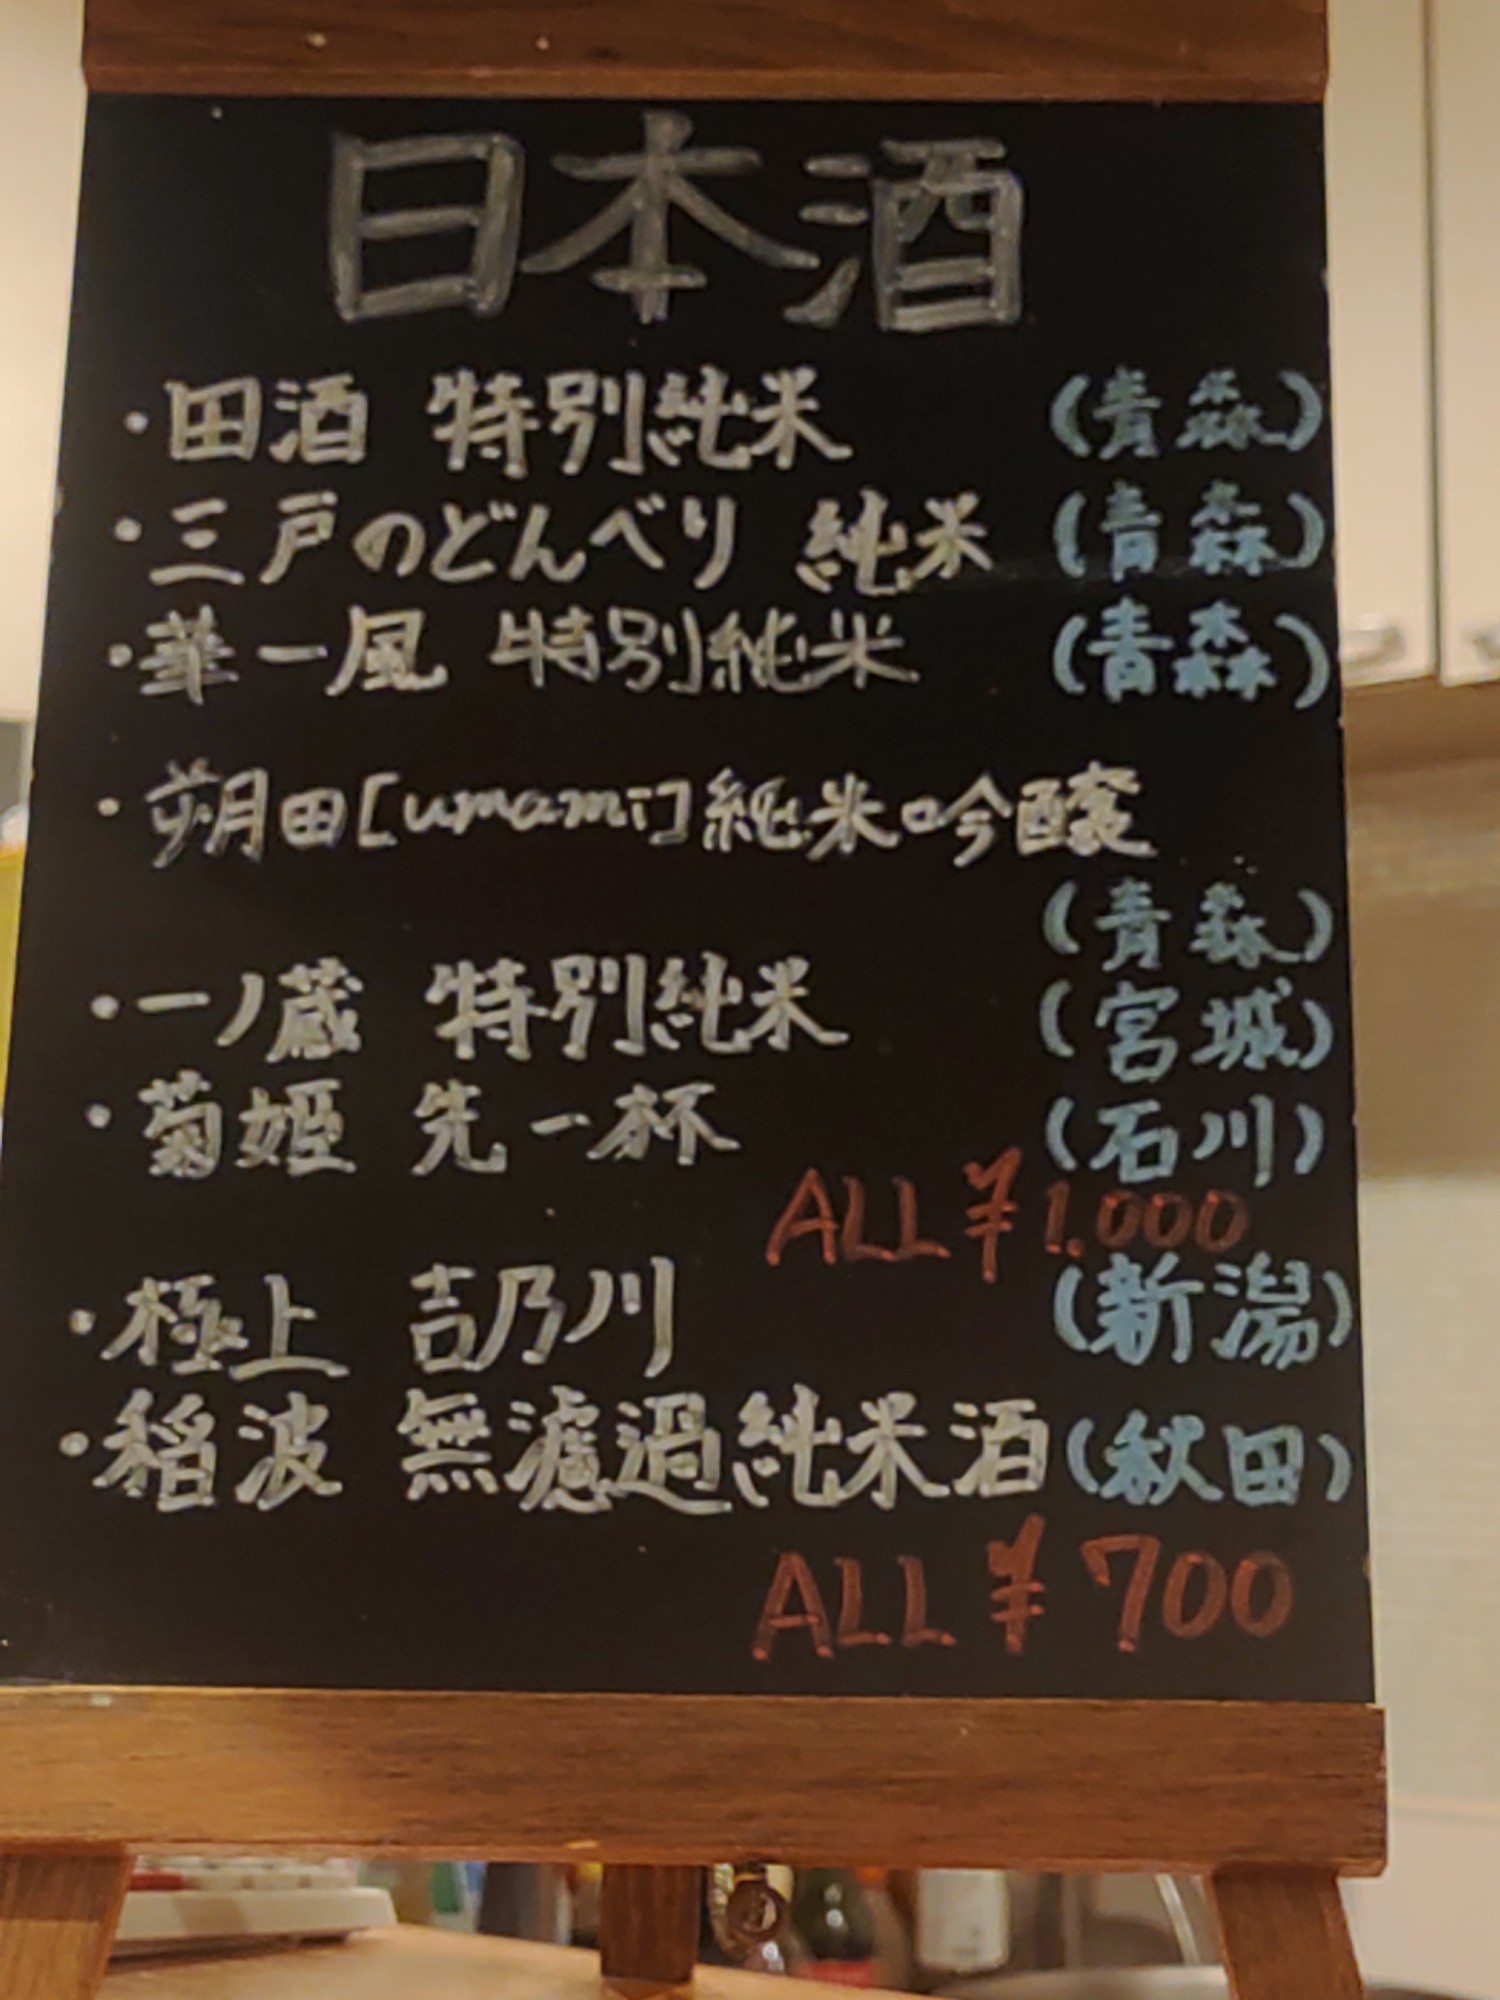 日本酒
・田酒 特別純米 (青森)
・三戸のどんべり 純米 (青森)
・華一風 特別純米 (青森)
・朔田[umami]純米吟醸
(青森)
・一ノ蔵 特別純米 (宮城)
・菊姫 先一杯 (石川)
ALL ¥1.000
・極上 吉乃川 (新潟)
・稲波 無濾過純米酒 (秋田)
ALL ¥700